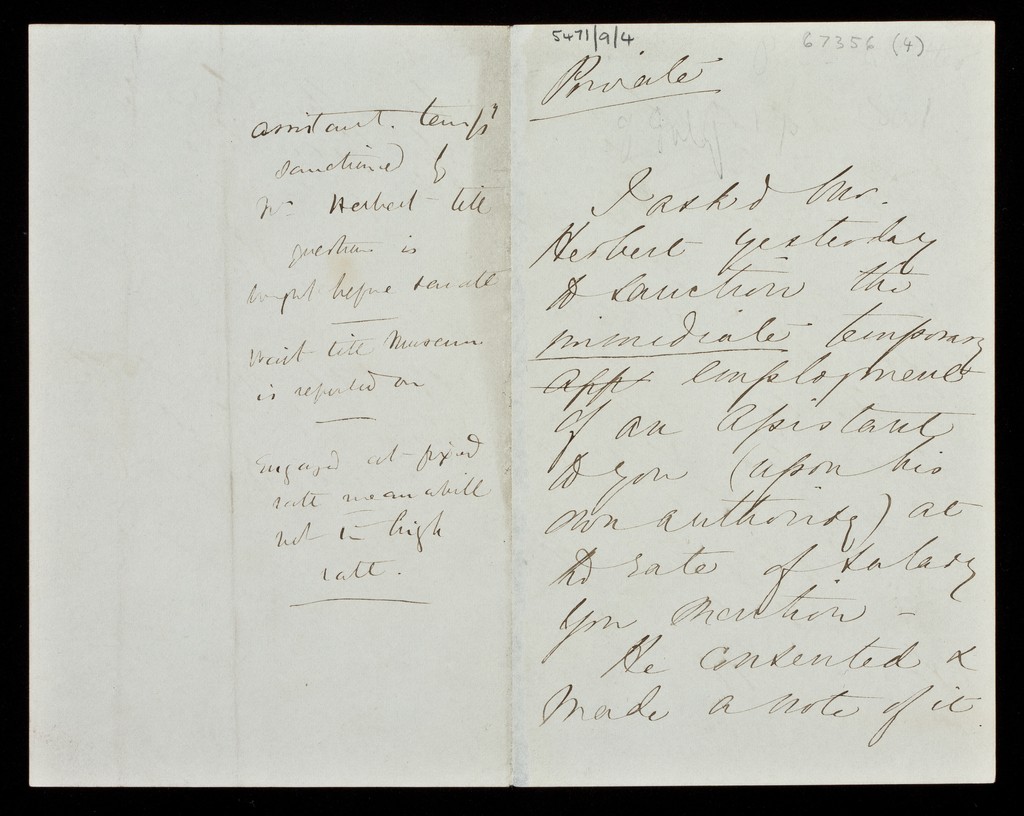 assistant. temp^y
sanctioned by
Mr Herbert till
question is
brought before Senate
Wait till Museum
is reported on
Engaged at fixed
rate meanwhile
not to high
rate.
5471/9/4
67356 (4)
Private
I asked Mr.
Herbert yesterday
to sanction the
immediate temporary
app employment
of an Assistant
to you (upon his
own authority) at
the rate of salary
you mention -
He consented &
made a note of it.